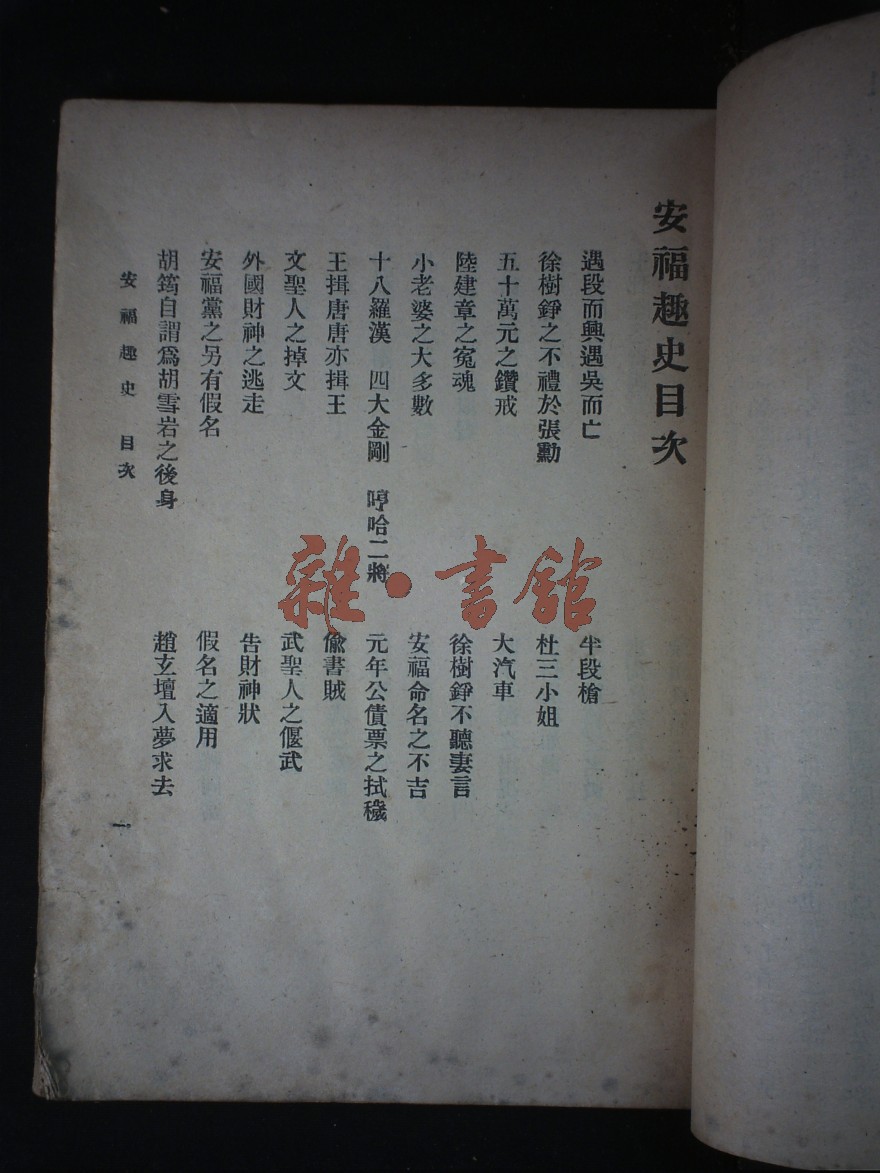 安福趣史目次
遇段而興遇吳而亡　半段槍
徐樹錚之不禮於張勳　杜三小姐
五十萬元之鑽戒　大汽車
陸建章之冤魂　徐樹錚不聽妻言
小老婆之大多數　安福命名之不吉
十八羅漢　四大金剛　哼哈二將　元年公債票之拭穢
王揖唐唐亦揖王　偷書賊
文聖人之掉文　武聖人之偃武
外國財神之逃走　告財神狀
安福黨之另有假名　假名之適用
胡筠自謂爲胡雪岩之後身　趙玄壇入夢求去
安福趣史　目次　一
雜·書館